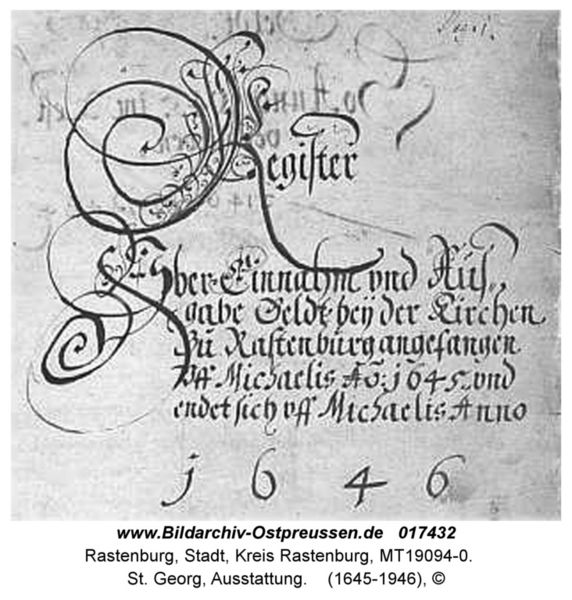 Register
Vber Einnahm vnd Auß-
gabe Geldt beÿ der Kirchen
Zu Rastenburg angefangen
Vff Michaelis Ao: 1645. vnd
endet sich vff Michaelis Anno
1646
www.Bildarchiv-Ostpreussen.de 017432
Rastenburg, Stadt, Kreis Rastenburg, MT19094-0.
St. Georg, Ausstattung. (1645-1946), ©